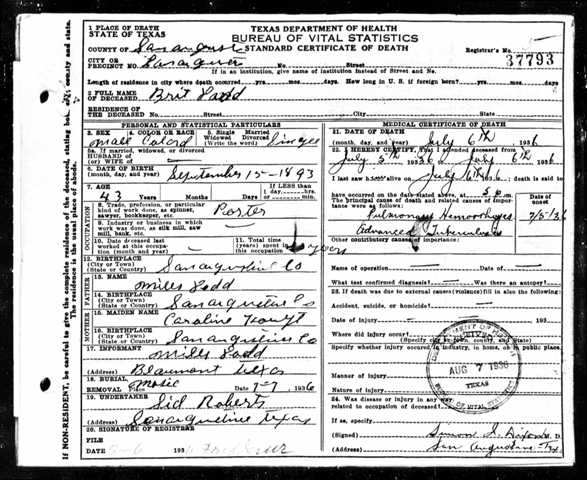 1 PLACE OF DEATH
STATE OF TEXAS
TEXAS DEPARTMENT OF HEALTH
BUREAU OF VITAL STATISTICS
STANDARD CERTIFICATE OF DEATH
COUNTY OF San augustine
CITY OR PRECINCT NO.
No. Street
Registrar's No.
37793
If in an institution, give name of institution instead of Street and No.
Length of residence in city where death occurred yrs. mos. days. How long in U. S. if foreign born? yrs. mos. days
2 FULL NAME OF DECEASED Brit
RESIDENCE OF THE DECEASED No. Street City State
PERSONAL AND STATISTICAL PARTICULARS
3. SEX 4. COLOR OR RACE 5. Single Married Widowed Divorced (Write the word)
male Colord Single
5a. If married, widowed, or divorced
HUSBAND OF
(or) WIFE OF
6. DATE OF BIRTH
(month, day, and year) September 15-1893
7. AGE If LESS than
43 Years Months Days 1 day, hrs. min.
OCCUPATION
8. Trade, profession, or particular kind of work done, as spinner, sawyer, bookkeeper, etc. Porter
9. Industry or business in which work was done, as silk mill, saw mill, bank, etc.
10. Date deceased last worked at this occupation (month and year)
11. Total time (years) spent in this occupation years
12. BIRTHPLACE
(City or Town)
(State or Country) San augustine Co
FATHER
13. NAME Miles
14. BIRTHPLACE
(City or Town)
(State or Country) San augustine Co
MOTHER
15. MAIDEN NAME Caroline
16. BIRTHPLACE
(City or Town)
(State or Country) San augustine Co
17. INFORMANT Miles
(Address) Beaumont texas
18. BURIAL
REMOVAL Place Date 7-7 1936
19. UNDERTAKER Sid Roberts
(Address) San augustine texas
20. SIGNATURE OF REGISTRAR
FILE
DATE 193
MEDICAL CERTIFICATE OF DEATH
21. DATE OF DEATH
(month, day, and year) July 6th 1936
22. I HEREBY CERTIFY, That I attended deceased from
July 5th 1936 to July 6th 1936
I last saw h alive on July 6th; death is said to
have occurred on the date stated above, at 5 p.m.
The principal cause of death and related causes of importance were as follows:
Date of onset
Pulmonary Hemorrhages 7/5/36
Advanced Tuberculosis
Other contributory causes of importance:
Name of operation
What test confirmed diagnosis?
23. If death was due to external causes (violence) fill in also the following:
Accident, suicide, or homicide?
Date of injury 193
Where did injury occur?
(Specify city or town, county, and State)
Specify whether injury occurred in industry, in home, or in public place.
Manner of injury
Nature of injury
24. Was disease or injury in any way related to occupation of deceased?
If so, specify
(Signed) M. D.
(Address) San Augustine Tex
AUG 7 1936
TEXAS